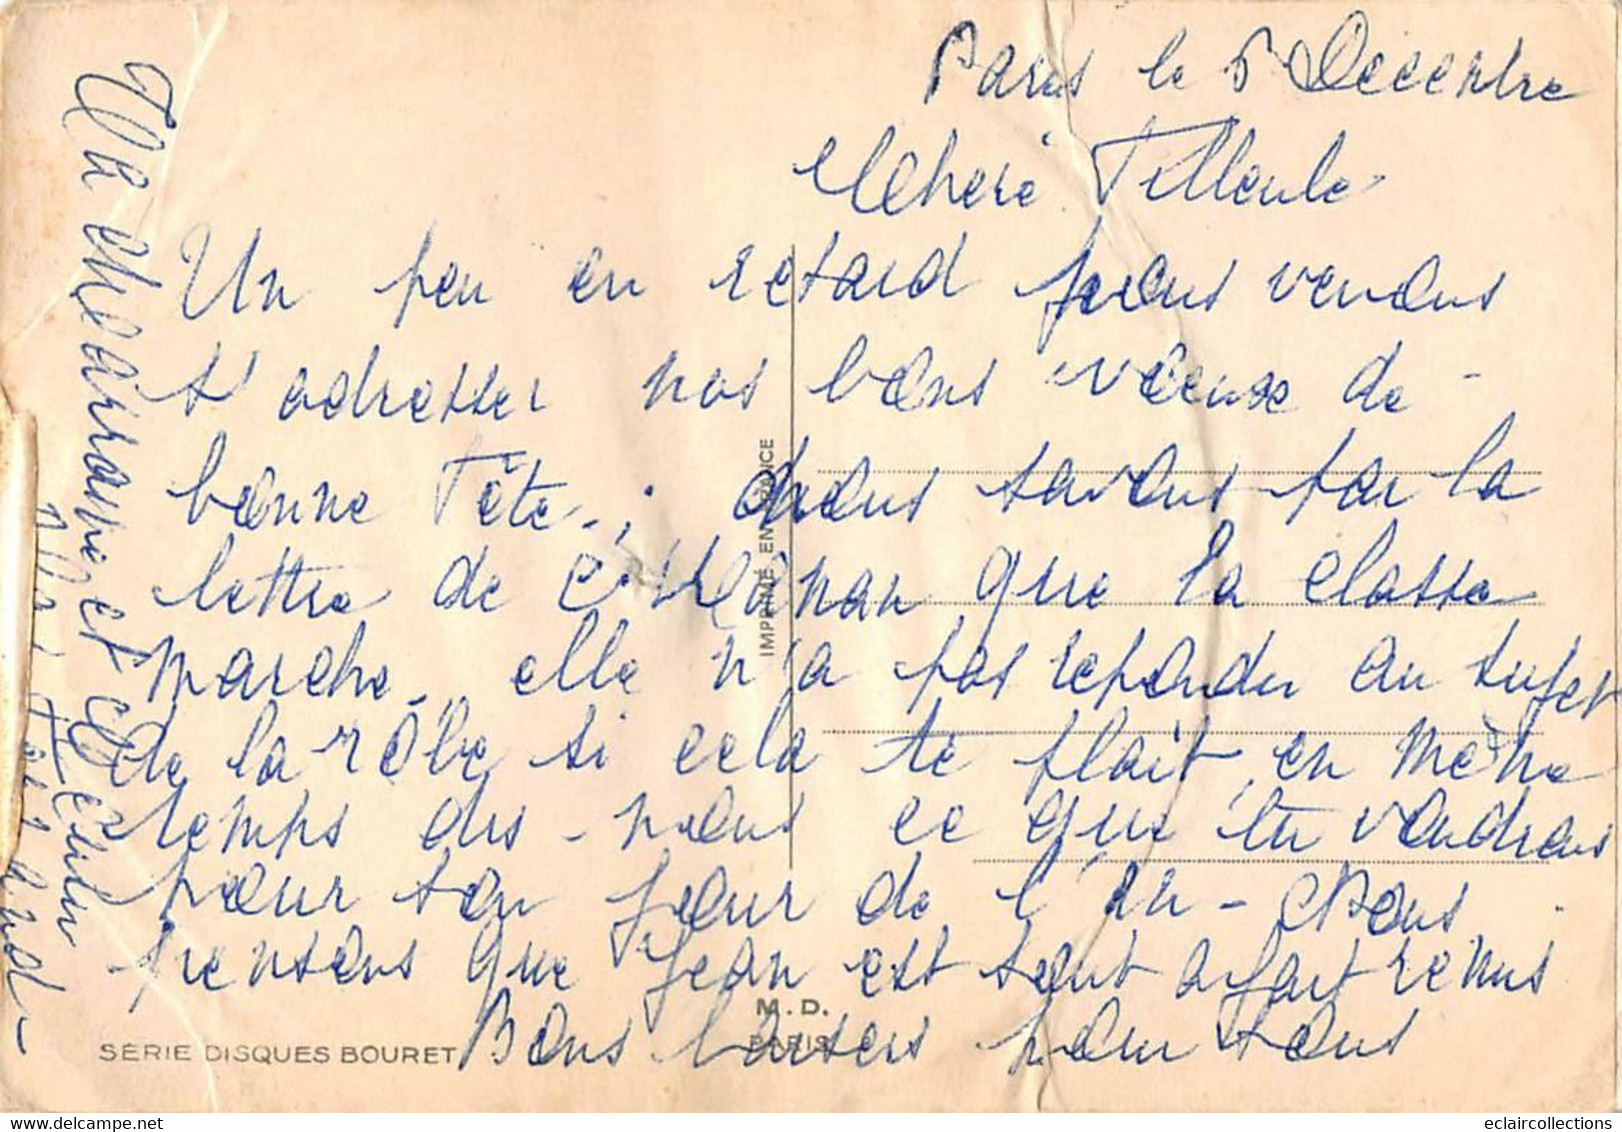 Paris le 5 Decembre
chere Filleule
Un peu en retard nous venons
t'adresser nos bons voeuxe de -
bonne Fête - nous savons par la
lettre de Maman que la classe
marche, elle n'a pas repondu au sujet
de la robe si cela te plait, en même
temps dis-nous ce que tu voudrais
pour ton jour de l'An - Nous
pensons que Jean est tout a fait remis
Bons baisers pour tous
Ta Marraine et
IMPRIMÉ EN FRANCE
M.D.
PARIS
SÉRIE DISQUES BOURET
eclaircollections